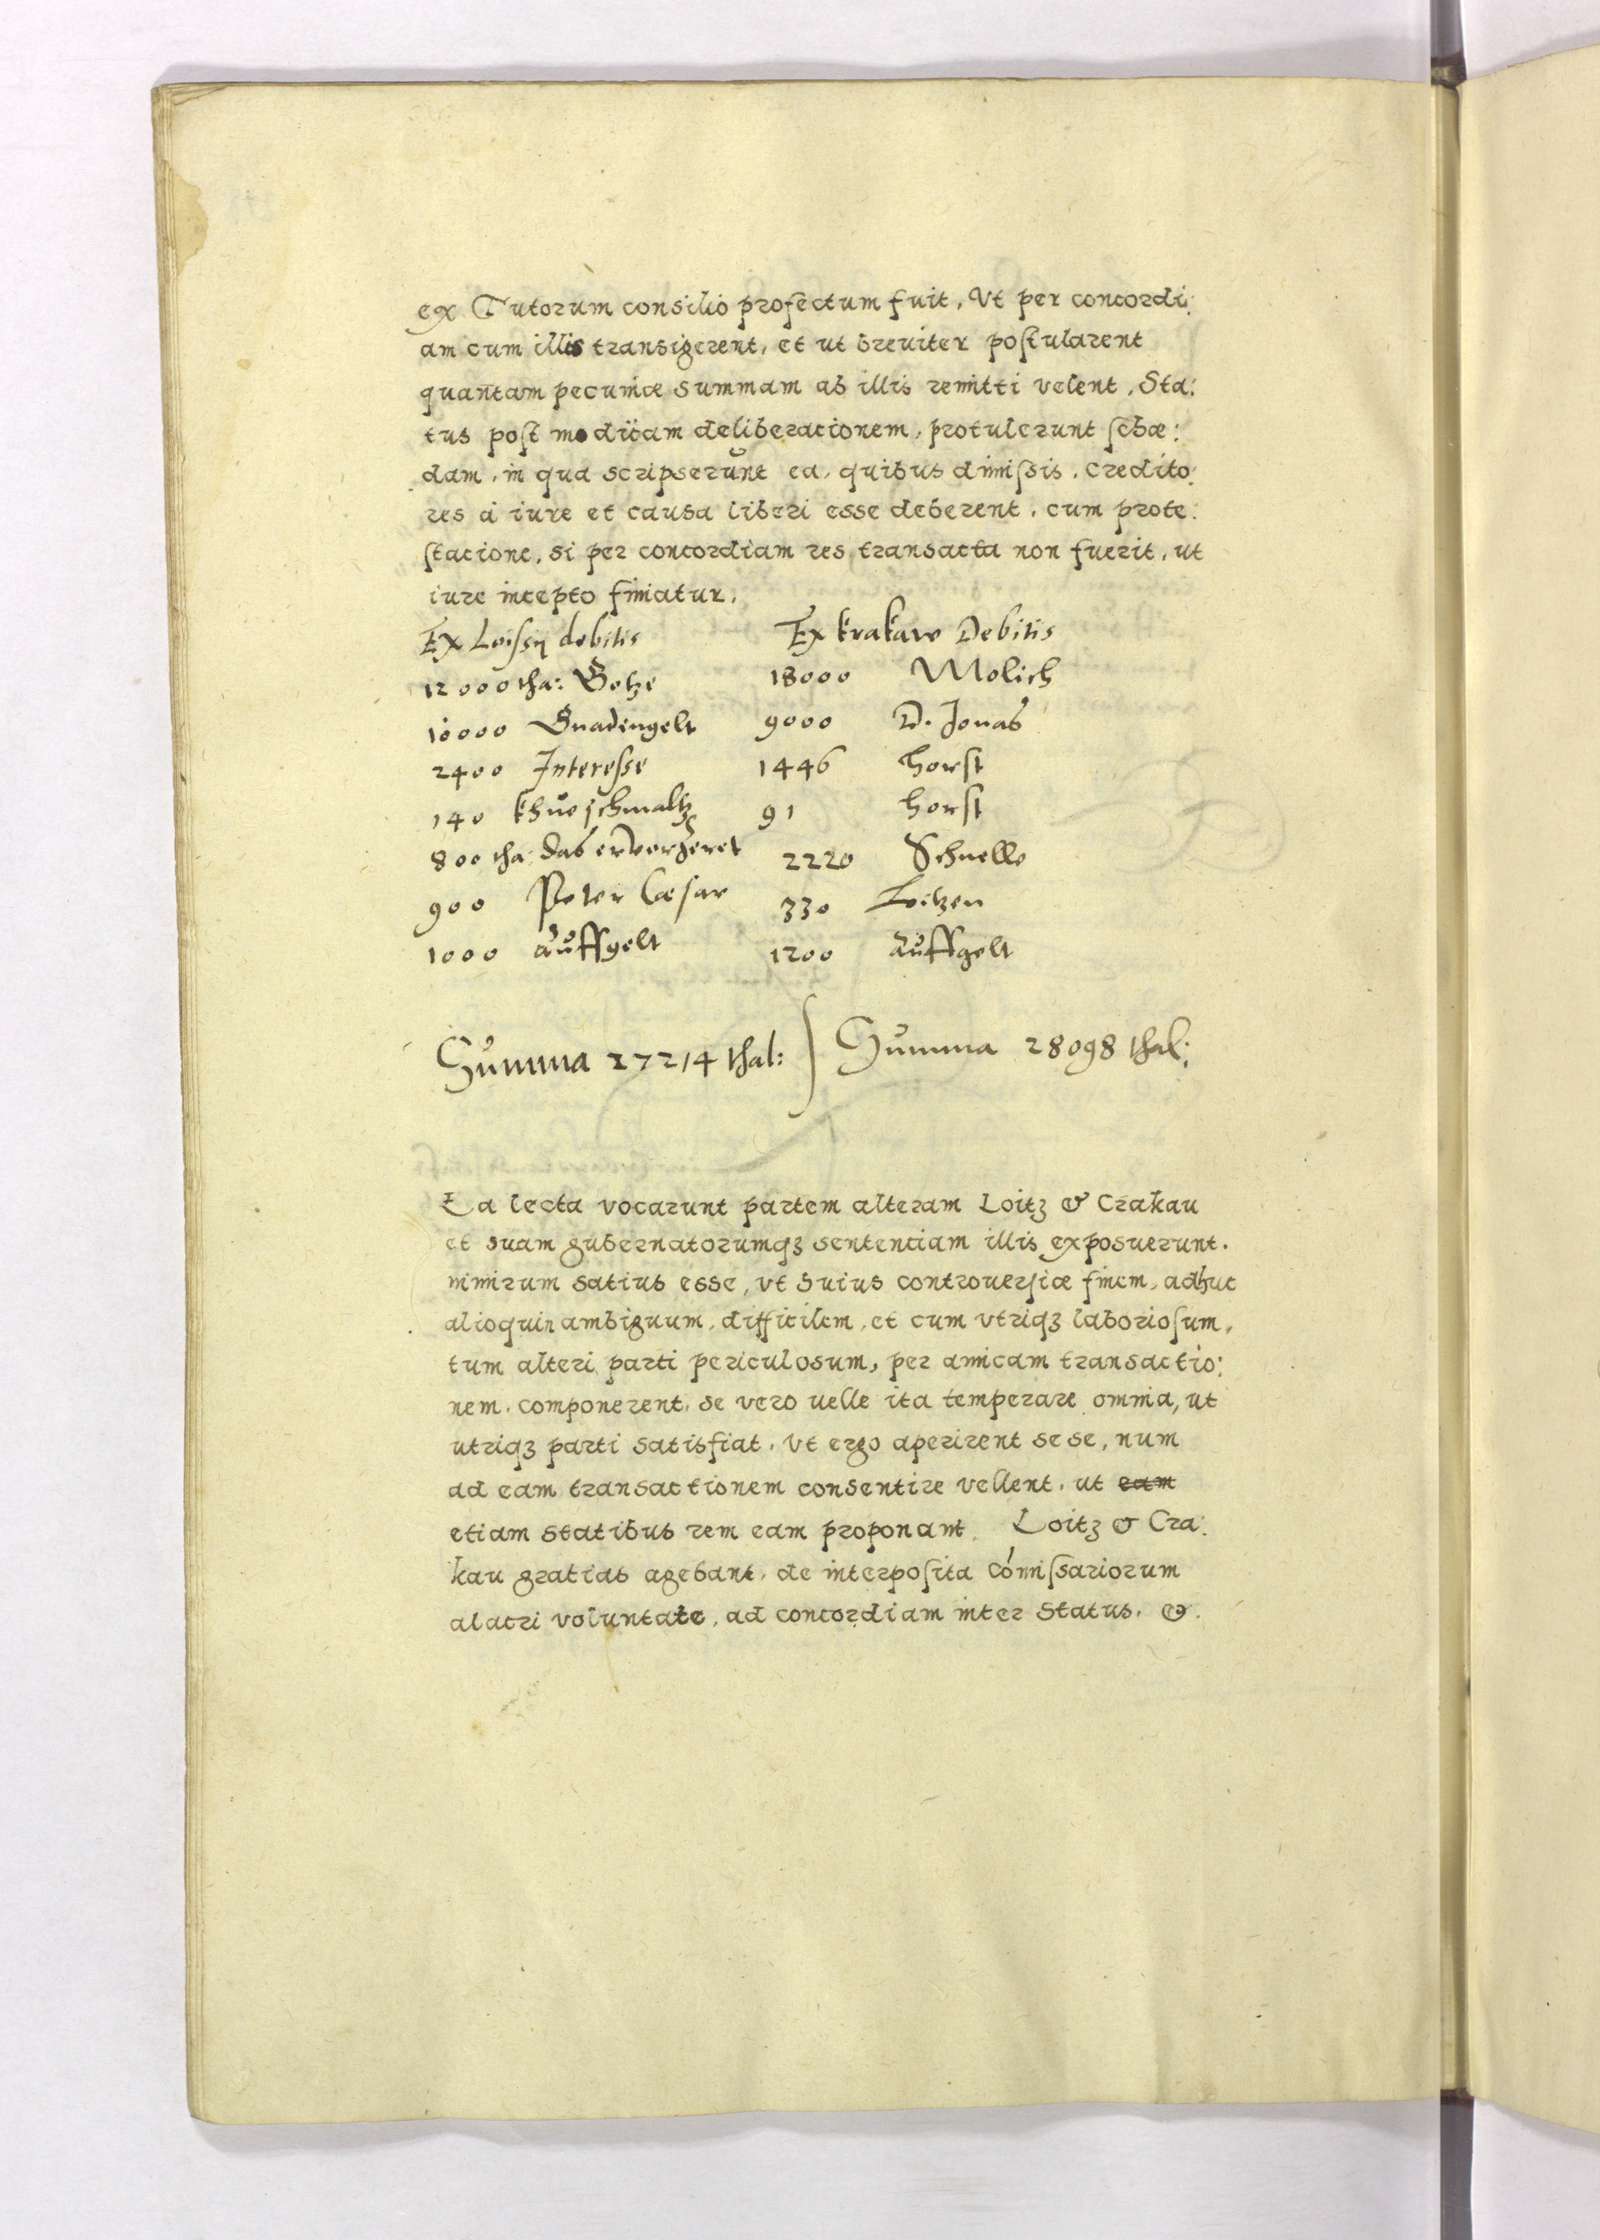 ex Tutorum consilio profectum fuit, Vt per concordi:
am cum illis transigerent, et ut breuiter postularent
quantam pecuniæ summam ab illis remitti velent, Sta:
tus post modicam deliberacionem, protulerunt schæ:
dam, in qua scripserunt ea, quibus dimissis, Credito:
res a iure et causa liberi esse deberent, cum prote:
stacione, si per concordiam res transacta non fuerit, ut
iure incepto finiatur.
Ex Loissy debitis Ex krakaw Debitis
12000 tha: Gotze 18000 Molich
10000 Gnadengelt 9000 D. Jonas
2400 Interesse 1446 horst
140 khueschmaltz 91 horst
800 tha: das er verzeret 2220 Schnelle
900 Peter Cæsar 330 Loitzen
1000 auffgelt 1200 auffgelt
Summa 27214 thal: Summa 28098 thal:
Ea lecta vocarunt partem alteram Loitz & Crakau
et suam gubernatorumqз sententiam illis exposuerunt.
nimirum satius esse, vt huius controuersiæ finem, adhuc
alioquin ambiguum, difficilem, et cum vtriqз laboriosum,
tum alteri parti periculosum, per amicam transactio:
nem, componerent, se vero uelle ita temperare omnia, ut
utriqз parti satisfiat, vt ergo aperirent sese, num
ad eam transactionem consentire vellent, ut eam
etiam statibus rem eam proponant. Loitz & Cra:
kau gratias agebant, de interposita Comissariorum
alacri voluntate, ad concordiam inter Status, &.